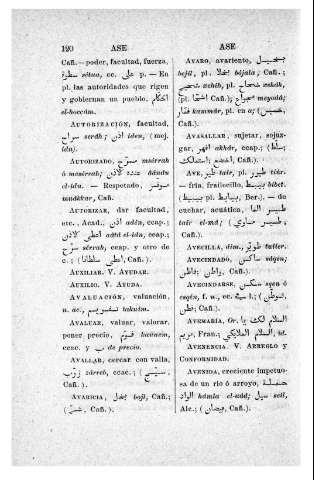 120 ASE
Cañ.—poder, facultad, fuerza,
سطوة situa, cc. على p. — En
pl. las autoridades que rigen
y gobiernan un pueblo, الحكام
el-hoccám.
AUTORIZACIÓN, facultad,
سراح serâh; اذن iden, (mej.
idn).
AUTORIZADO, مسرّح
ó
el-idn. — Respetado, موقر
muákkar, Cañ.
AUTORIZAR, dar facultad,
etc., Acad., اذن adén, ccap.;
اعطى الاذن aáta el-iden, ccap.;
سرّح sérrah, ccap. y otro de
c.; (اعطى سلطانا, Cañ.).
AUXILIAR. V. AYUDAR.
AUXILIO. V. AYUDA.
AVALUACIÓN, valuación,
n. ac., تقويم takuím.
AVALUAR, valuar, valorar,
poner precio, قوّم kuouem,
ccac. y ب de precio.
AVALLAR, cercar con valla,
زرّب zárreb, ccac.; (سيّج,
Cañ.).
AVARICIA, بخل bojl, Cañ.;
(شحّ, Cañ.).
ASE
AVARO, avariento, بخيل
bejíl, pl. بخلا bójala, Cañ.;
شحيح xahih, pl. شحاح xahih,
(pl. اشحا Cañ.);
pl. en a; (خسيس,
Cañ.).
AVASALLAR, sujetar, sojuz-
gar, قهر akhár, ccap.; (سلط;
اخضع; استملك, Cañ.).
AVE, طير tair, pl. طيور tiúr.
— fría, frailecillo, بيبط bibet.
(بيبط pl. بيابط, Ber.). — de
cuchar, acuática, طير الما
tair el-má; (طير مباري,
Cañ.).
AVECILLA, dim., طوير tuiier.
AVECINDADO, ساكن sáquen,
Cañ. (قاطن; واطن, Cañ.).
AVECINDARSE, سكن squen ó
cc. في p.; (توطن;
قطن, Cañ.).
AVEMARÍA, Or., السلام لك يا
مريم, Fran.; السلام الملايكي, id.
AVENENCIA. V. ARREGLO y
CONFORMIDAD.
AVENIDA, creciente impetuo-
sa de un río ó arroyo, حملة
الواد hámla el-uád; سيل seil,
Alc.; (فيضان, Cañ.).